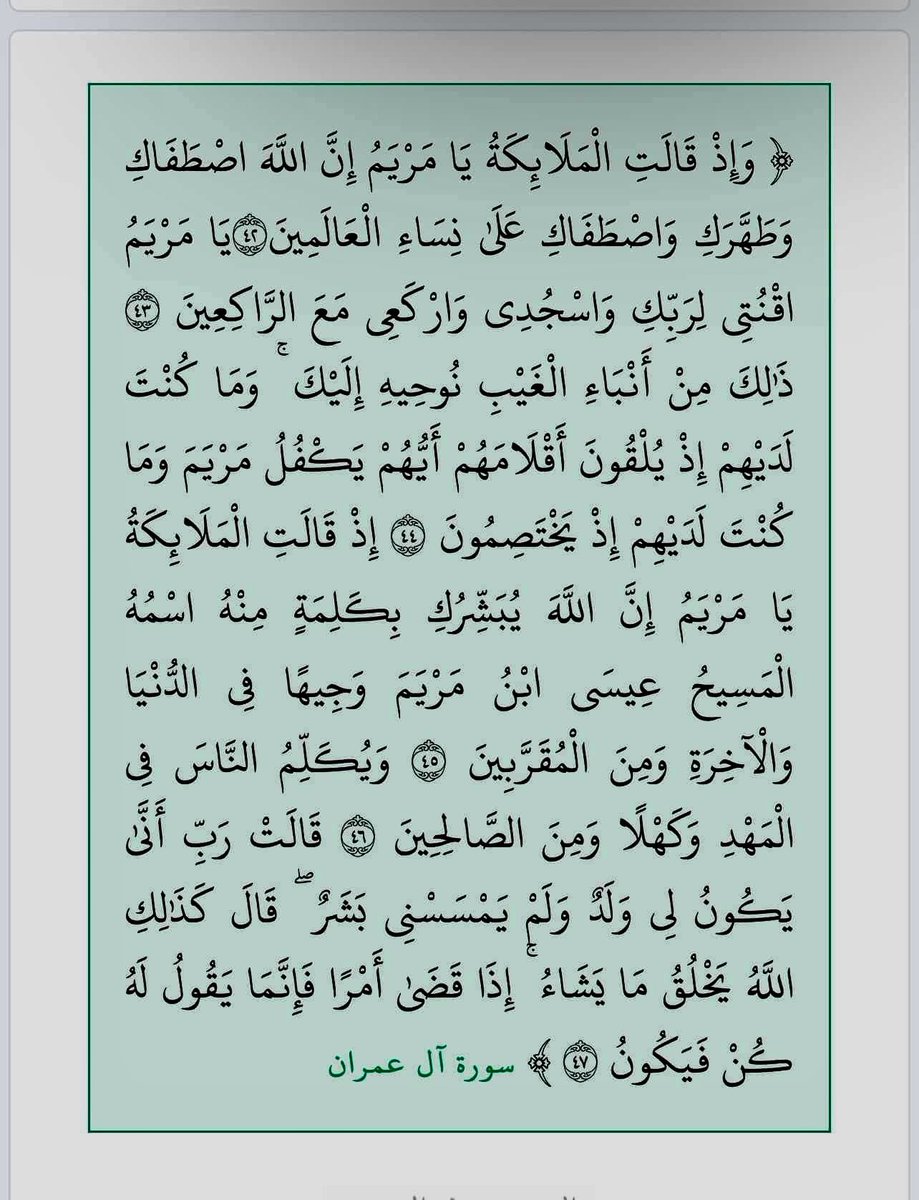 ﴿ وَإِذْ قَالَتِ الْمَلَائِكَةُ يَا مَرْيَمُ إِنَّ اللَّهَ اصْطَفَاكِ
وَطَهَّرَكِ وَاصْطَفَاكِ عَلَىٰ نِسَاءِ الْعَالَمِينَ ٤٢ يَا مَرْيَمُ
اقْنُتِى لِرَبِّكِ وَاسْجُدِى وَارْكَعِى مَعَ الرَّاكِعِينَ ٤٣
ذَٰلِكَ مِنْ أَنْبَاءِ الْغَيْبِ نُوحِيهِ إِلَيْكَ ۚ وَمَا كُنْتَ
لَدَيْهِمْ إِذْ يُلْقُونَ أَقْلَامَهُمْ أَيُّهُمْ يَكْفُلُ مَرْيَمَ وَمَا
كُنْتَ لَدَيْهِمْ إِذْ يَخْتَصِمُونَ ٤٤ إِذْ قَالَتِ الْمَلَائِكَةُ
يَا مَرْيَمُ إِنَّ اللَّهَ يُبَشِّرُكِ بِكَلِمَةٍ مِنْهُ اسْمُهُ
الْمَسِيحُ عِيسَى ابْنُ مَرْيَمَ وَجِيهًا فِى الدُّنْيَا
وَالْآخِرَةِ وَمِنَ الْمُقَرَّبِينَ ٤٥ وَيُكَلِّمُ النَّاسَ فِى
الْمَهْدِ وَكَهْلًا وَمِنَ الصَّالِحِينَ ٤٦ قَالَتْ رَبِّ أَنَّىٰ
يَكُونُ لِى وَلَدٌ وَلَمْ يَمْسَسْنِى بَشَرٌ ۖ قَالَ كَذَٰلِكِ
اللَّهُ يَخْلُقُ مَا يَشَاءُ ۚ إِذَا قَضَىٰ أَمْرًا فَإِنَّمَا يَقُولُ لَهُ
كُنْ فَيَكُونُ ٤٧ ﴾ سورة آل عمران